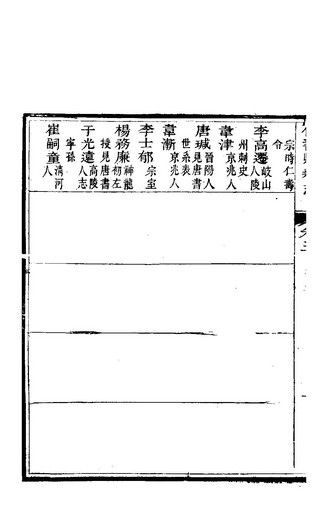 宗時仁壽
令
李高遷岐山人陵州刺史
韋津京兆人
唐瑊晉陽人見唐書世系表
韋漸京兆人
李士郁宗室
楊務廉神龍初左授見唐書
于光遠高陵人志寧孫
崔嗣童清河人